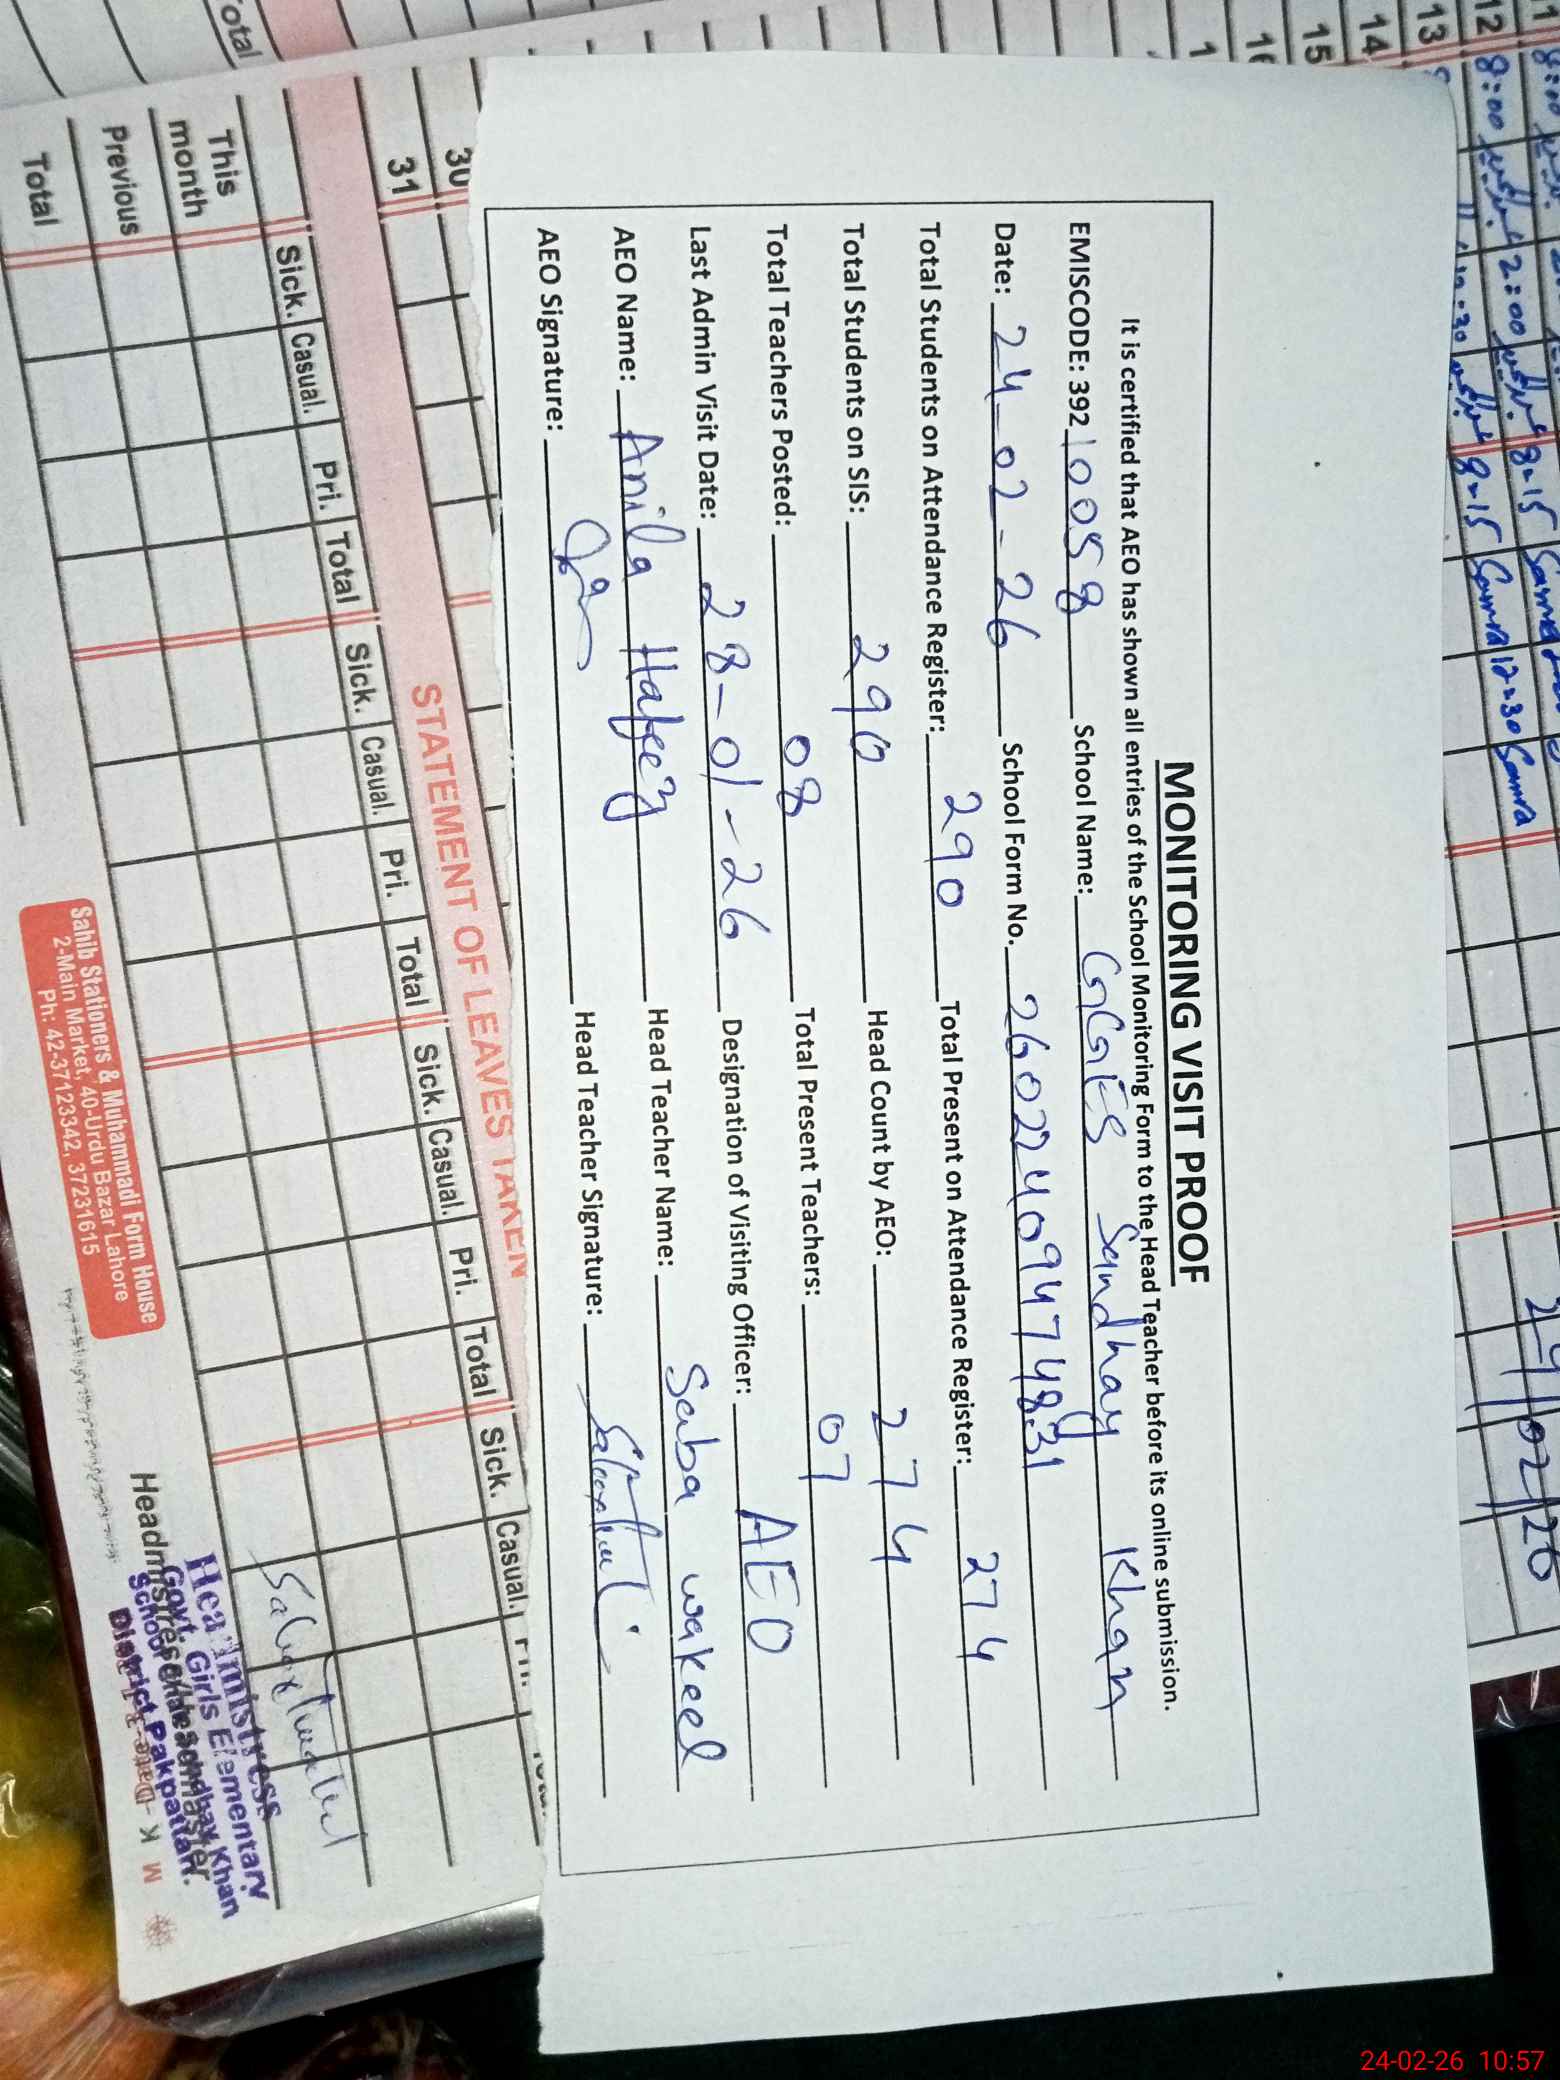 MONITORING VISIT PROOF
It is certified that AEO has shown all entries of the School Monitoring Form to the Head Teacher before its online submission.
EMISCODE: 39210058 School Name: GGES Sandhay Khan
Date: 24-02-26 School Form No. 26022409474831
Total Students on Attendance Register: 290 Total Present on Attendance Register: 274
Total Students on SIS: 290 Head Count by AEO: 274
Total Teachers Posted: 08 Total Present Teachers: 07
Last Admin Visit Date: 28-01-26 Designation of Visiting Officer: AEO
AEO Name: Anila Hafeez Head Teacher Name: Saba wakeel
AEO Signature: Head Teacher Signature:
11 8:00
12 8:00 2:00 8-15
13 12:30 8-15 Samra 12:30 Samra
14
15
16
1
24/02/26
30
31
STATEMENT OF LEAVES TAKEN
Sick. Casual. Pri. Total Sick. Casual. Pri. Total Sick. Casual. Pri. Total Sick. Casual.
This month
Previous
Total
Sahib Stationers & Muhammadi Form House
2-Main Market, 40-Urdu Bazar Lahore
Ph: 42-37123342, 37231615
Headmistress
Govt. Girls Elementary
School Sandhay Khan
District Pakpattan.
24-02-26 10:57